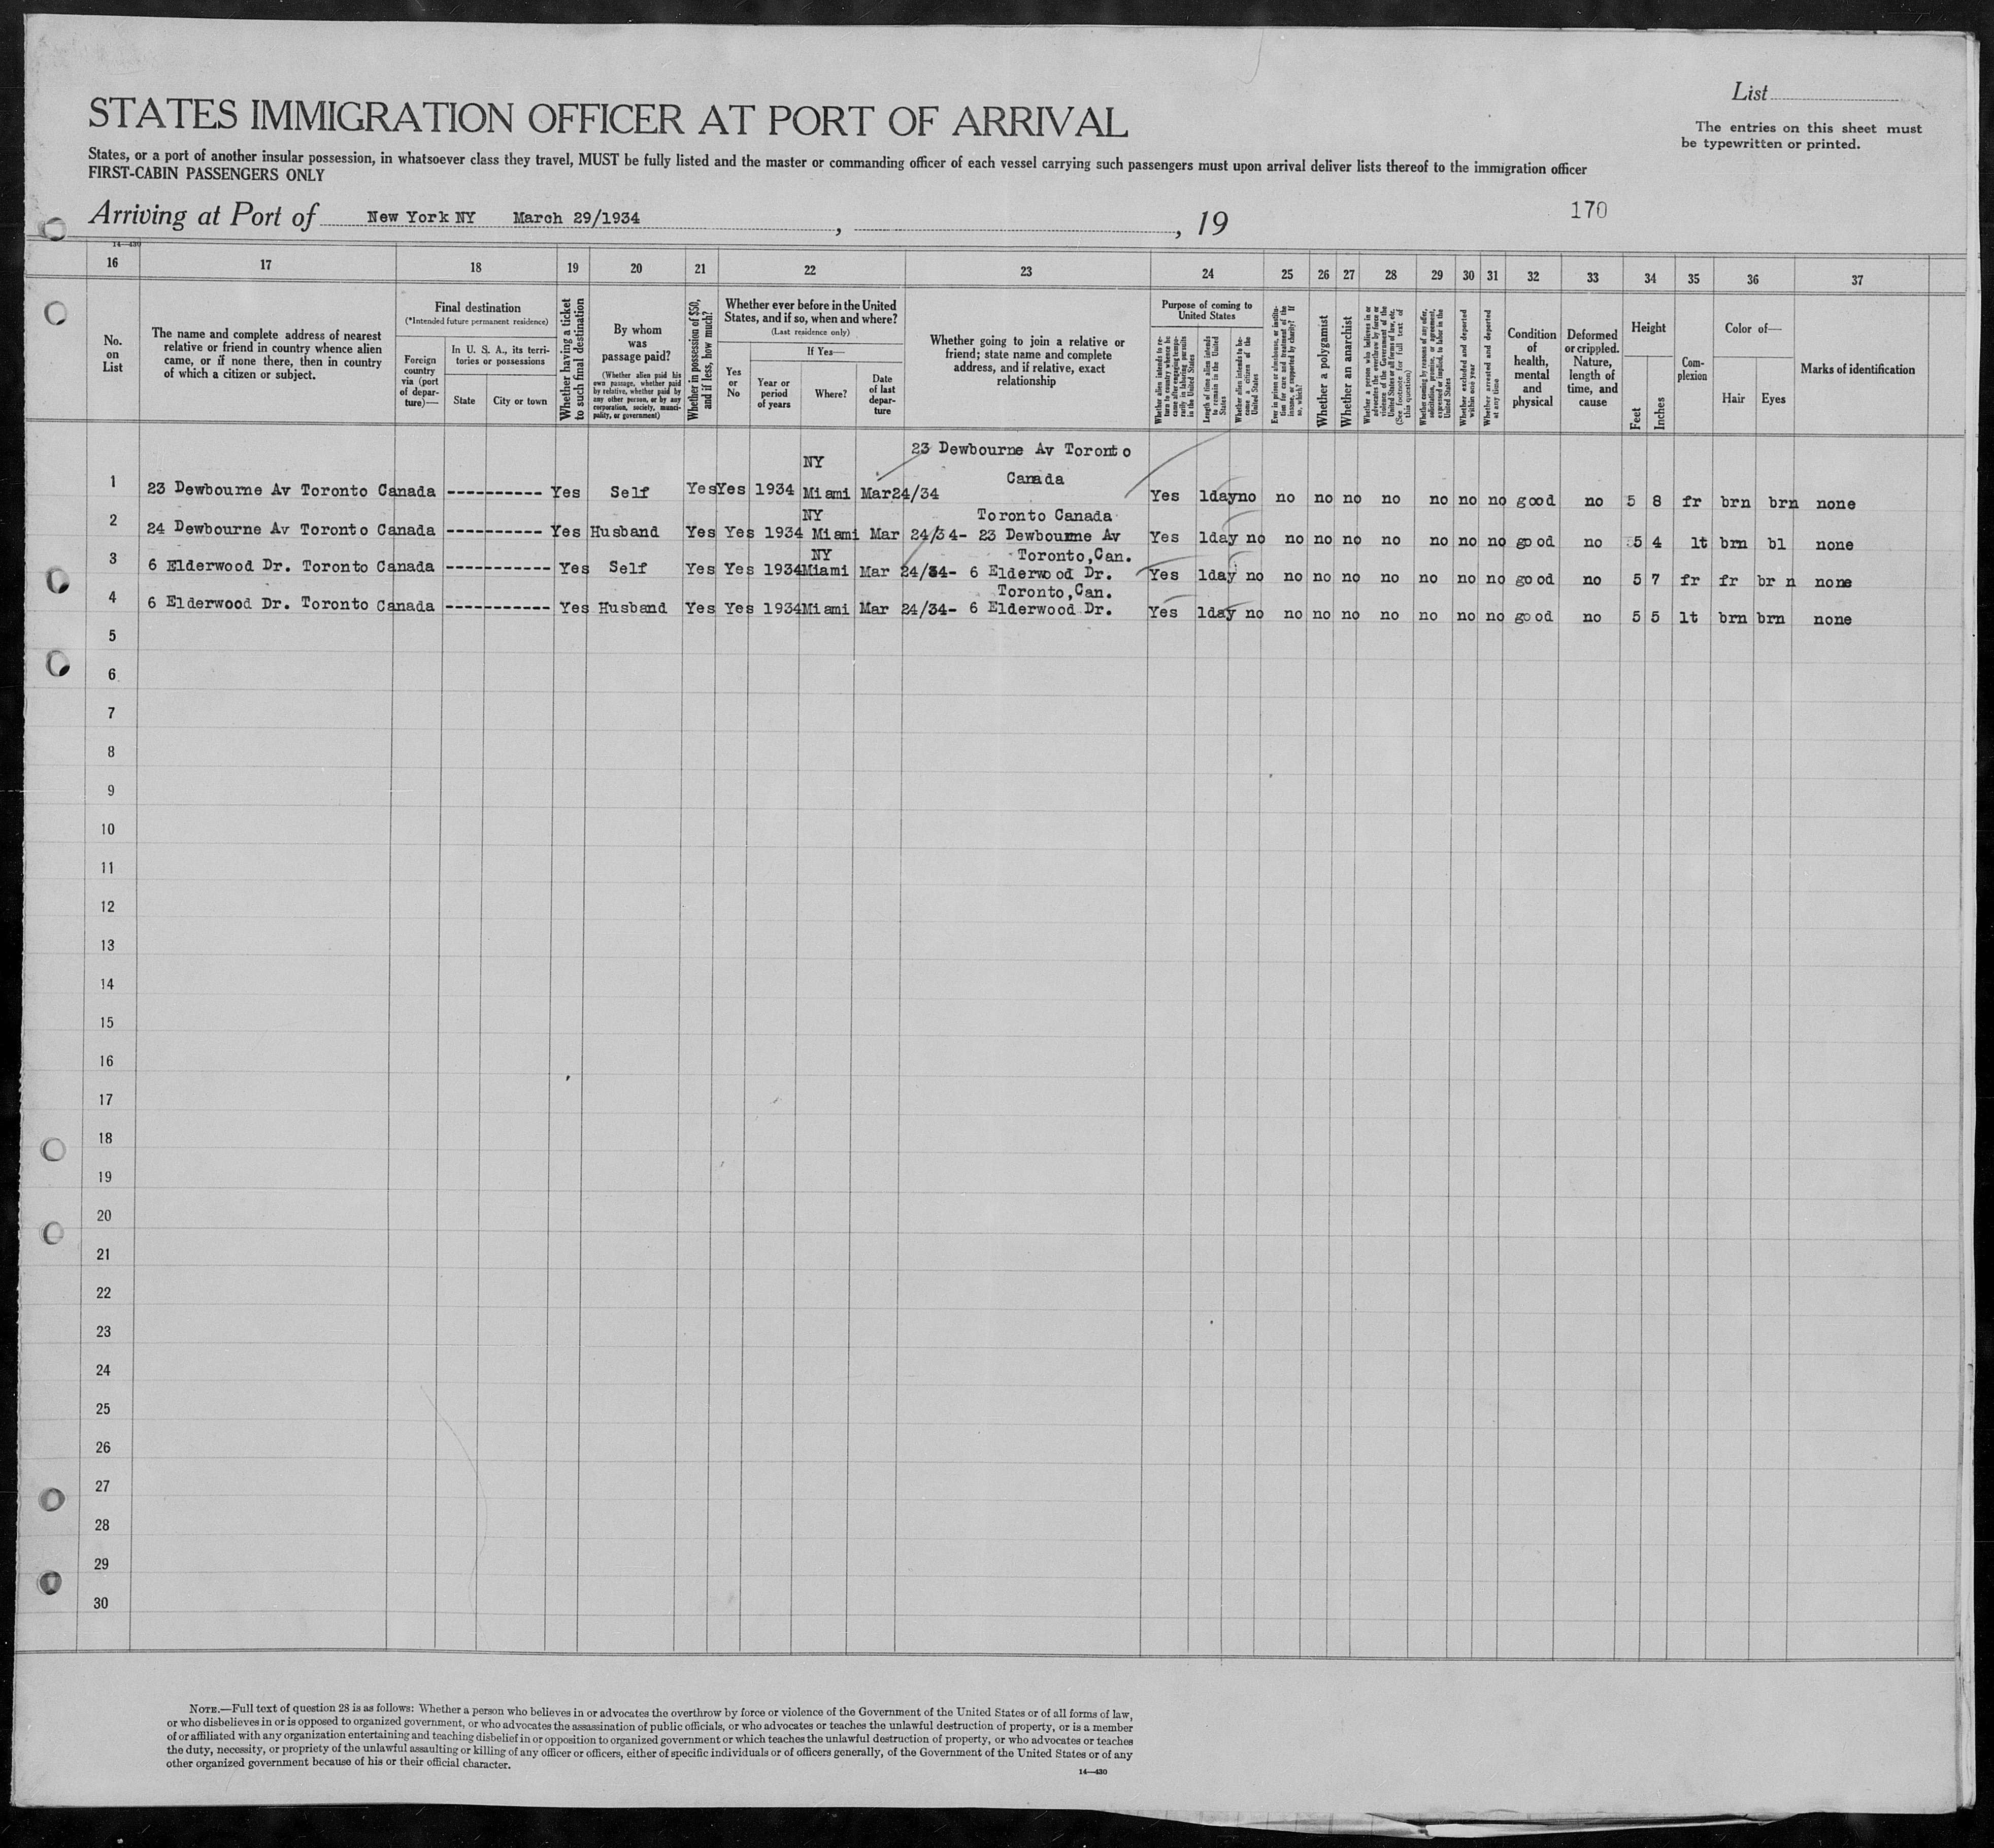 List
The entries on this sheet must
be typewritten or printed.
STATES IMMIGRATION OFFICER AT PORT OF ARRIVAL
States, or a port of another insular possession, in whatsoever class they travel, MUST be fully listed and the master or commanding officer of each vessel carrying such passengers must upon arrival deliver lists thereof to the immigration officer
FIRST-CABIN PASSENGERS ONLY
Arriving at Port of New York NY March 29/1934 , , 19
170
14—430
16 17 18 19 20 21 22 23 24 25 26 27 28 29 30 31 32 33 34 35 36 37
No.
on
List
The name and complete address of nearest
relative or friend in country whence alien
came, or if none there, then in country
of which a citizen or subject.
Final destination
(*Intended future permanent residence)
Foreign
country
via (port
of depar-
ture)—
In U. S. A., its terri-
tories or possessions
State
City or town
Whether having a ticket
to such final destination
By whom
was
passage paid?
(Whether alien paid his
own passage, whether paid
by relative, whether paid by
any other person, or by any
corporation, society, munici-
pality, or government)
Whether in possession of $50,
and if less, how much?
Whether ever before in the United
States, and if so, when and where?
(Last residence only)
Yes
or
No
If Yes—
Year or
period
of years
Where?
Date
of last
depar-
ture
Whether going to join a relative or
friend; state name and complete
address, and if relative, exact
relationship
Purpose of coming to
United States
Whether alien intends to re-
turn to country whence he
came after engaging tempo-
rarily in laboring pursuits
in the United States
Length of time alien intends
to remain in the United
States
Whether alien intends to be-
come a citizen of the
United States
Ever in prison or almshouse, or institu-
tion for care and treatment of the
insane, or supported by charity? If
so, which?
Whether a polygamist
Whether an anarchist
Whether a person who believes in or
advocates the overthrow by force or
violence of the Government of the
United States or all forms of law, etc.
(See footnote for full text of
this question)
Whether coming by reasons of any offer,
solicitation, promise, or agreement,
expressed or implied, to labor in the
United States
Whether excluded and deported
within one year
Whether arrested and deported
at any time
Condition
of
health,
mental
and
physical
Deformed
or crippled.
Nature,
length of
time, and
cause
Height
Feet
Inches
Com-
plexion
Color of—
Hair
Eyes
Marks of identification
23 Dewbourne Av Toronto
NY
Canada
1 23 Dewbourne Av Toronto Canada ---------- Yes Self Yes Yes 1934 Miami Mar24/34 Yes 1day no no no no no no no no good no 5 8 fr brn brn none
NY Toronto Canada
2 24 Dewbourne Av Toronto Canada ---------- Yes Husband Yes Yes 1934 Miami Mar 24/34- 23 Dewbourne Av Yes 1day no no no no no no no no good no 5 4 lt brn bl none
NY Toronto,Can.
3 6 Elderwood Dr. Toronto Canada ----------- Yes Self Yes Yes 1934 Miami Mar 24/34- 6 Elderwood Dr. Yes 1day no no no no no no no no good no 5 7 fr fr br n none
Toronto,Can.
4 6 Elderwood Dr. Toronto Canada ----------- Yes Husband Yes Yes 1934 Miami Mar 24/34- 6 Elderwood Dr. Yes 1day no no no no no no no no good no 5 5 lt brn brn none
5
6
7
8
9
10
11
12
13
14
15
16
17
18
19
20
21
22
23
24
25
26
27
28
29
30
NOTE.—Full text of question 28 is as follows: Whether a person who believes in or advocates the overthrow by force or violence of the Government of the United States or of all forms of law,
or who disbelieves in or is opposed to organized government, or who advocates the assassination of public officials, or who advocates or teaches the unlawful destruction of property, or is a member
of or affiliated with any organization entertaining and teaching disbelief in or opposition to organized government or which teaches the unlawful destruction of property, or who advocates or teaches
the duty, necessity, or propriety of the unlawful assaulting or killing of any officer or officers, either of specific individuals or of officers generally, of the Government of the United States or of any
other organized government because of his or their official character.
14—430